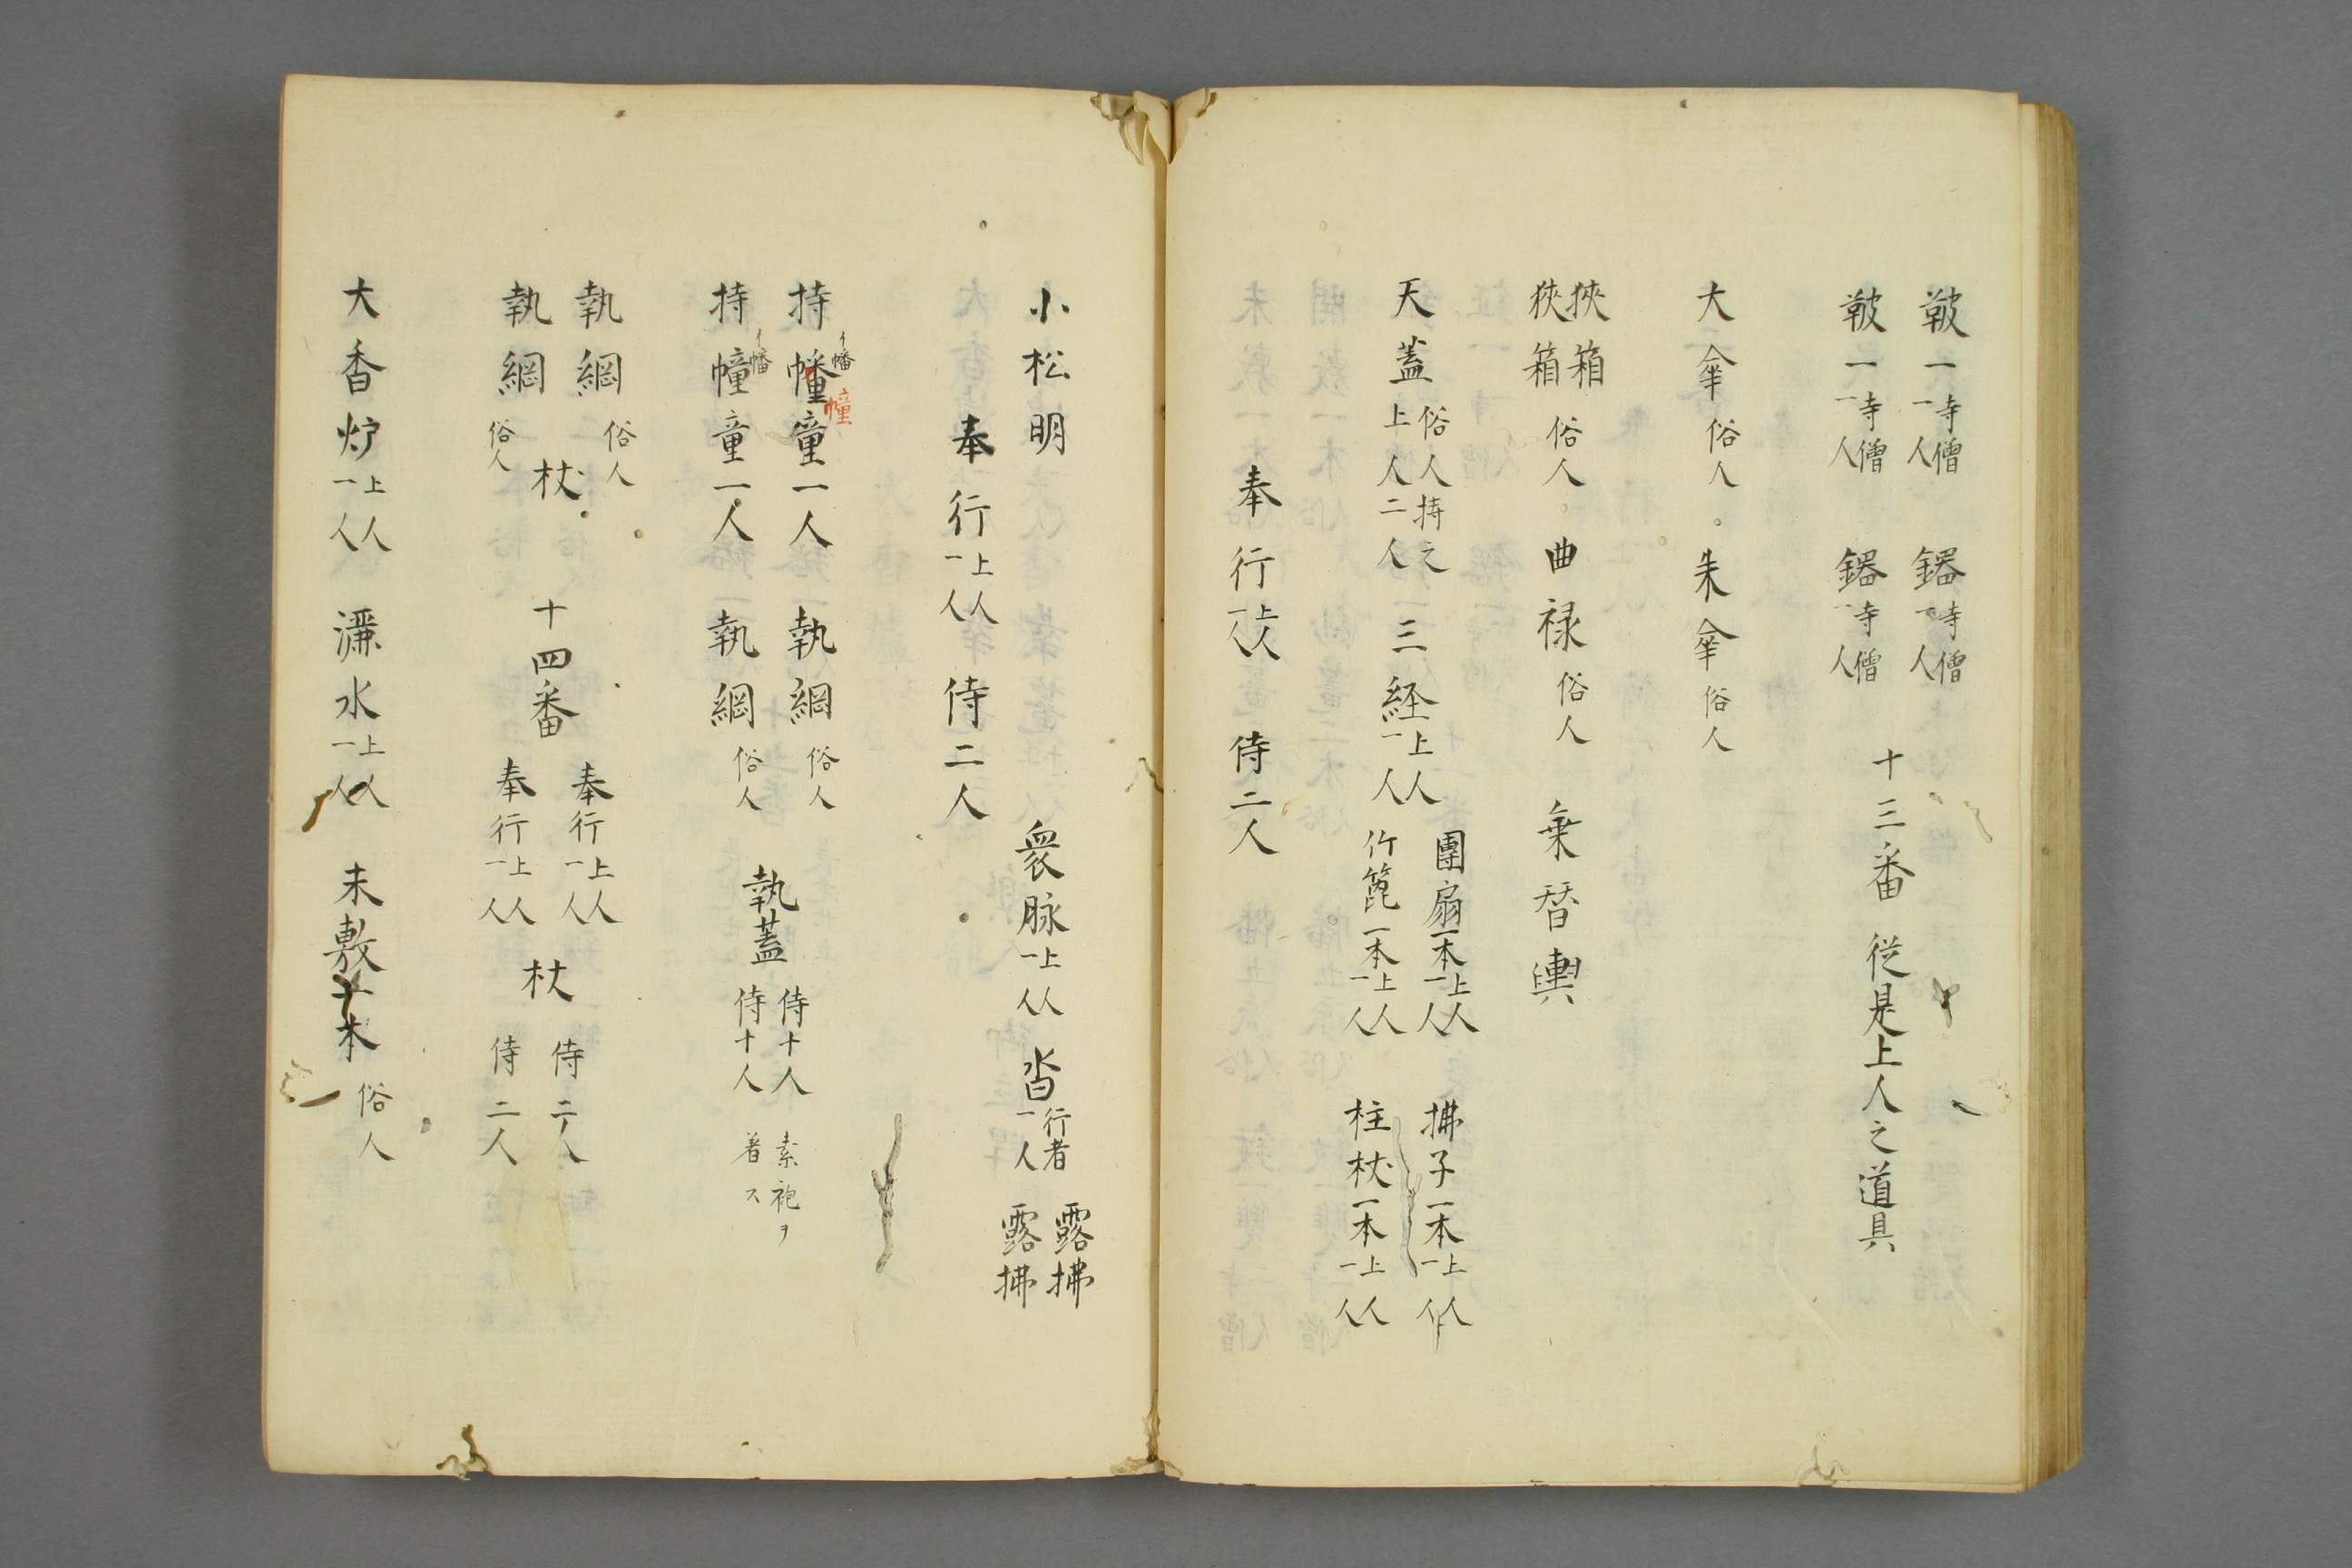 鞁一 寺僧一人 鑼一 寺僧一人
鞁一 寺僧一人 鑼一 寺僧一人
十三番 従是上人之道具
大傘 俗人 朱傘 俗人
挾箱
狹箱 俗人 曲禄 俗人 乗替輿
天蓋 俗人持之 上人二人 三経 上人一人
團扇一本 上人一人 拂子一本 上人一人
竹篦一本 上人一人 柱杖一本 上人一人
奉行 上人一人 侍二人
小松明 衆脉 上人一人 沓 行者一人 露拂 露拂
奉行 上人一人 侍二人
持幢童一人 執綱 俗人
イ幡
幢
持幢童一人 執綱 俗人
イ幡
執蓋 侍十人 侍十人 素袍ヲ着ス
執綱 俗人
執綱 俗人
杖 十四番
奉行 上人一人
奉行 上人一人
杖 侍二人 侍二人
大香炉 上人一人 濂水 上人一人 未敷 本 俗人